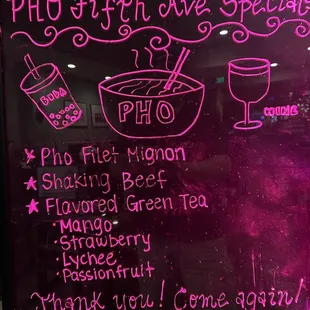 PHO Fifth Ave Specials
BOBA
PHO
WINE
★ Pho Filet Mignon
★ Shaking Beef
★ Flavored Green Tea
· Mango
· Strawberry
· Lychee
· Passionfruit
Thank you! Come again!